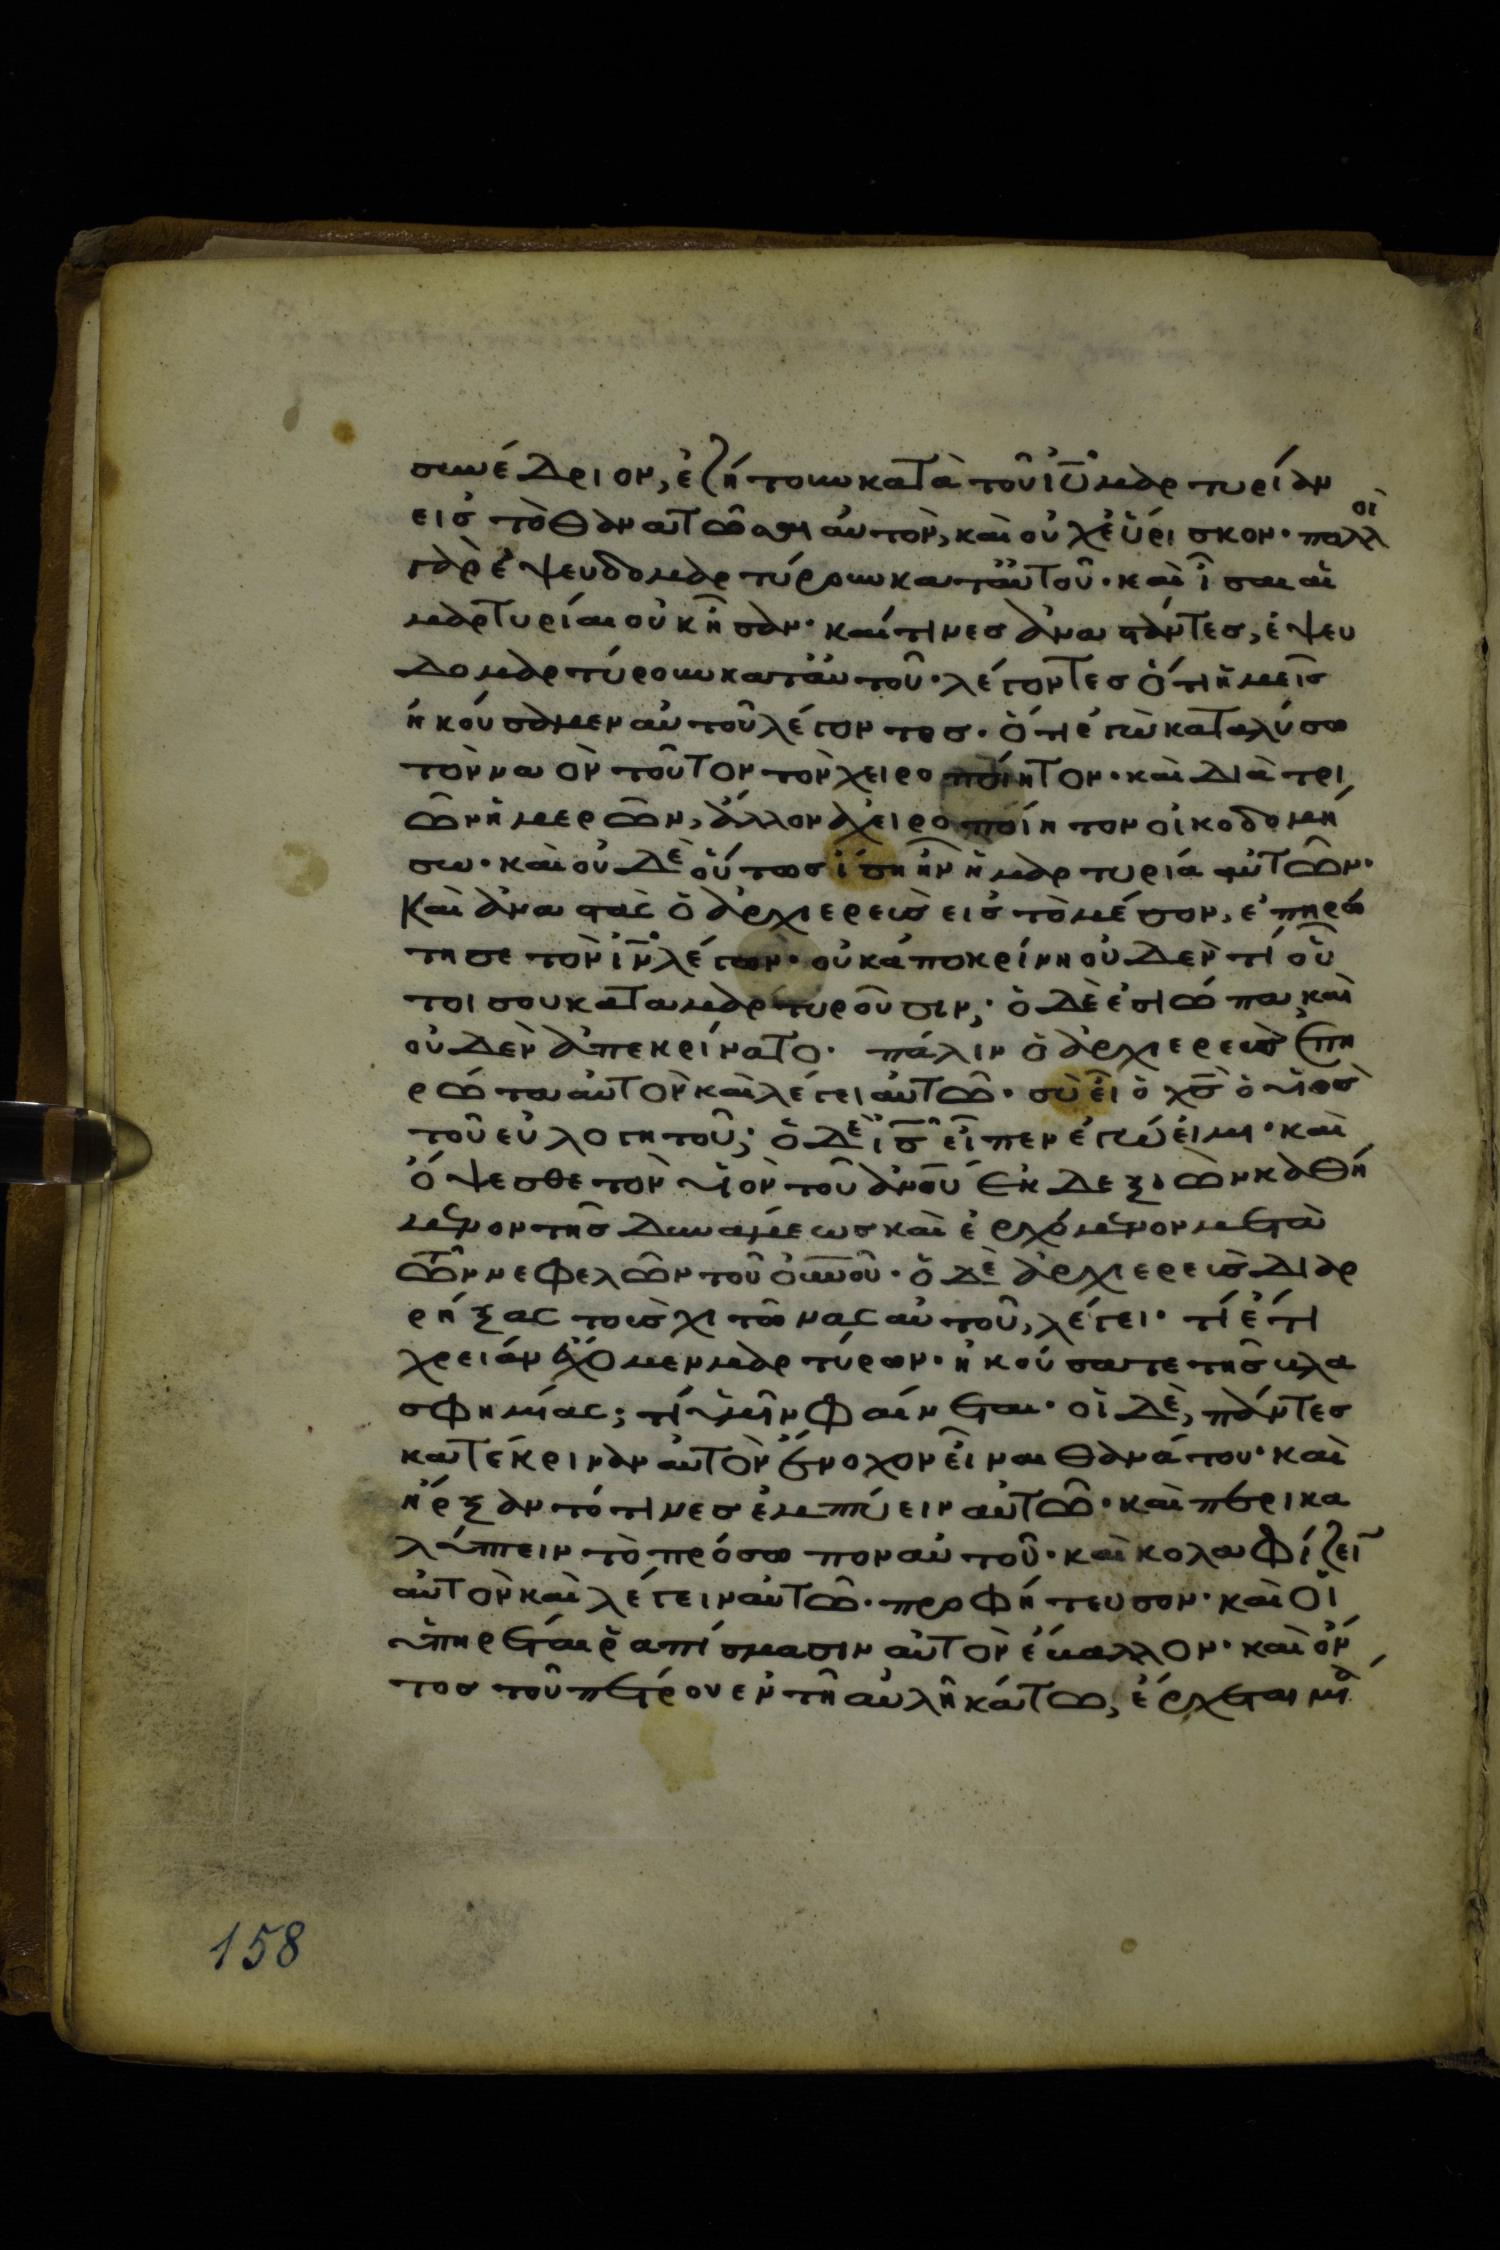 συνέδριον, ἐζήτουν κατὰ τοῦ ἰῦ μαρτυρίαν
εἰς τὸ θανατῶσαι αὐτόν, καὶ οὐχ εὕρισκον· πολλοὶ
γὰρ ἐψευδομαρτύρουν κατ' αὐτοῦ· καὶ ἶσαι αἱ
μαρτυρίαι οὐκ ἦσαν· καί τινες ἀναστάντες, ἐψευ
δομαρτύρουν κατ' αὐτοῦ· λέγοντες ὅτι ἡμεῖς
ἠκούσαμεν αὐτοῦ λέγοντος· ὅτι ἐγὼ καταλύσω
τὸν ναὸν τοῦτον τὸν χειροποίητον· καὶ διὰ τρι
ῶν ἡμερῶν, ἄλλον ἀχειροποίητον οἰκοδομή
σω· καὶ οὐδὲ οὕτως ἴση ἦν ἡ μαρτυρία αὐτῶν·
Καὶ ἀναστὰς ὁ ἀρχιερεὺς εἰς τὸ μέσον, ἐπηρώ
τησε τὸν ἰν λέγων· οὐκ ἀποκρίνη οὐδὲν τί οὗ
τοι σου καταμαρτυροῦσιν; ὁ δὲ ἐσιώπα, καὶ
οὐδὲν ἀπεκρίνατο· πάλιν ὁ ἀρχιερεὺς ἐπη
ρώτα αὐτὸν καὶ λέγει αὐτῶ· σὺ εἶ ὁ χς ὁ υἱὸς
τοῦ εὐλογητοῦ; ὁ δὲ ἰς εἶπεν ἐγώ εἰμι· καὶ
ὄψεσθε τὸν υἱὸν τοῦ ἀνοῦ ἐκ δεξιῶν καθή
μενον τῆς δυνάμεως καὶ ἐρχόμενον μετὰ
τῶν νεφελῶν τοῦ οὐνοῦ· ὁ δὲ ἀρχιερεὺς διαρ
ρήξας τοὺς χιτῶνας αὐτοῦ, λέγει· τί ἔτι
χρείαν ἔχομεν μαρτύρων· ἠκούσατε τῆς βλα
σφημίας; τί ὑμῖν φαίνεται· οἱ δὲ, πάντες
κατέκριναν αὐτὸν ἔνοχον εἶναι θανάτου· καὶ
ἤρξαντό τινες ἐμπτύειν αὐτῶ· καὶ περικα
λύπτειν τὸ πρόσωπον αὐτοῦ· καὶ κολαφίζειν
αὐτὸν καὶ λέγειν αὐτῶ· προφήτευσον· καὶ οἱ
ὑπηρέται ῥαπίσμασιν αὐτὸν ἔβαλλον· καὶ ὄν
τος τοῦ πέτρου ἐν τῆ αὐλῆ κάτω, ἔρχεται μία
158